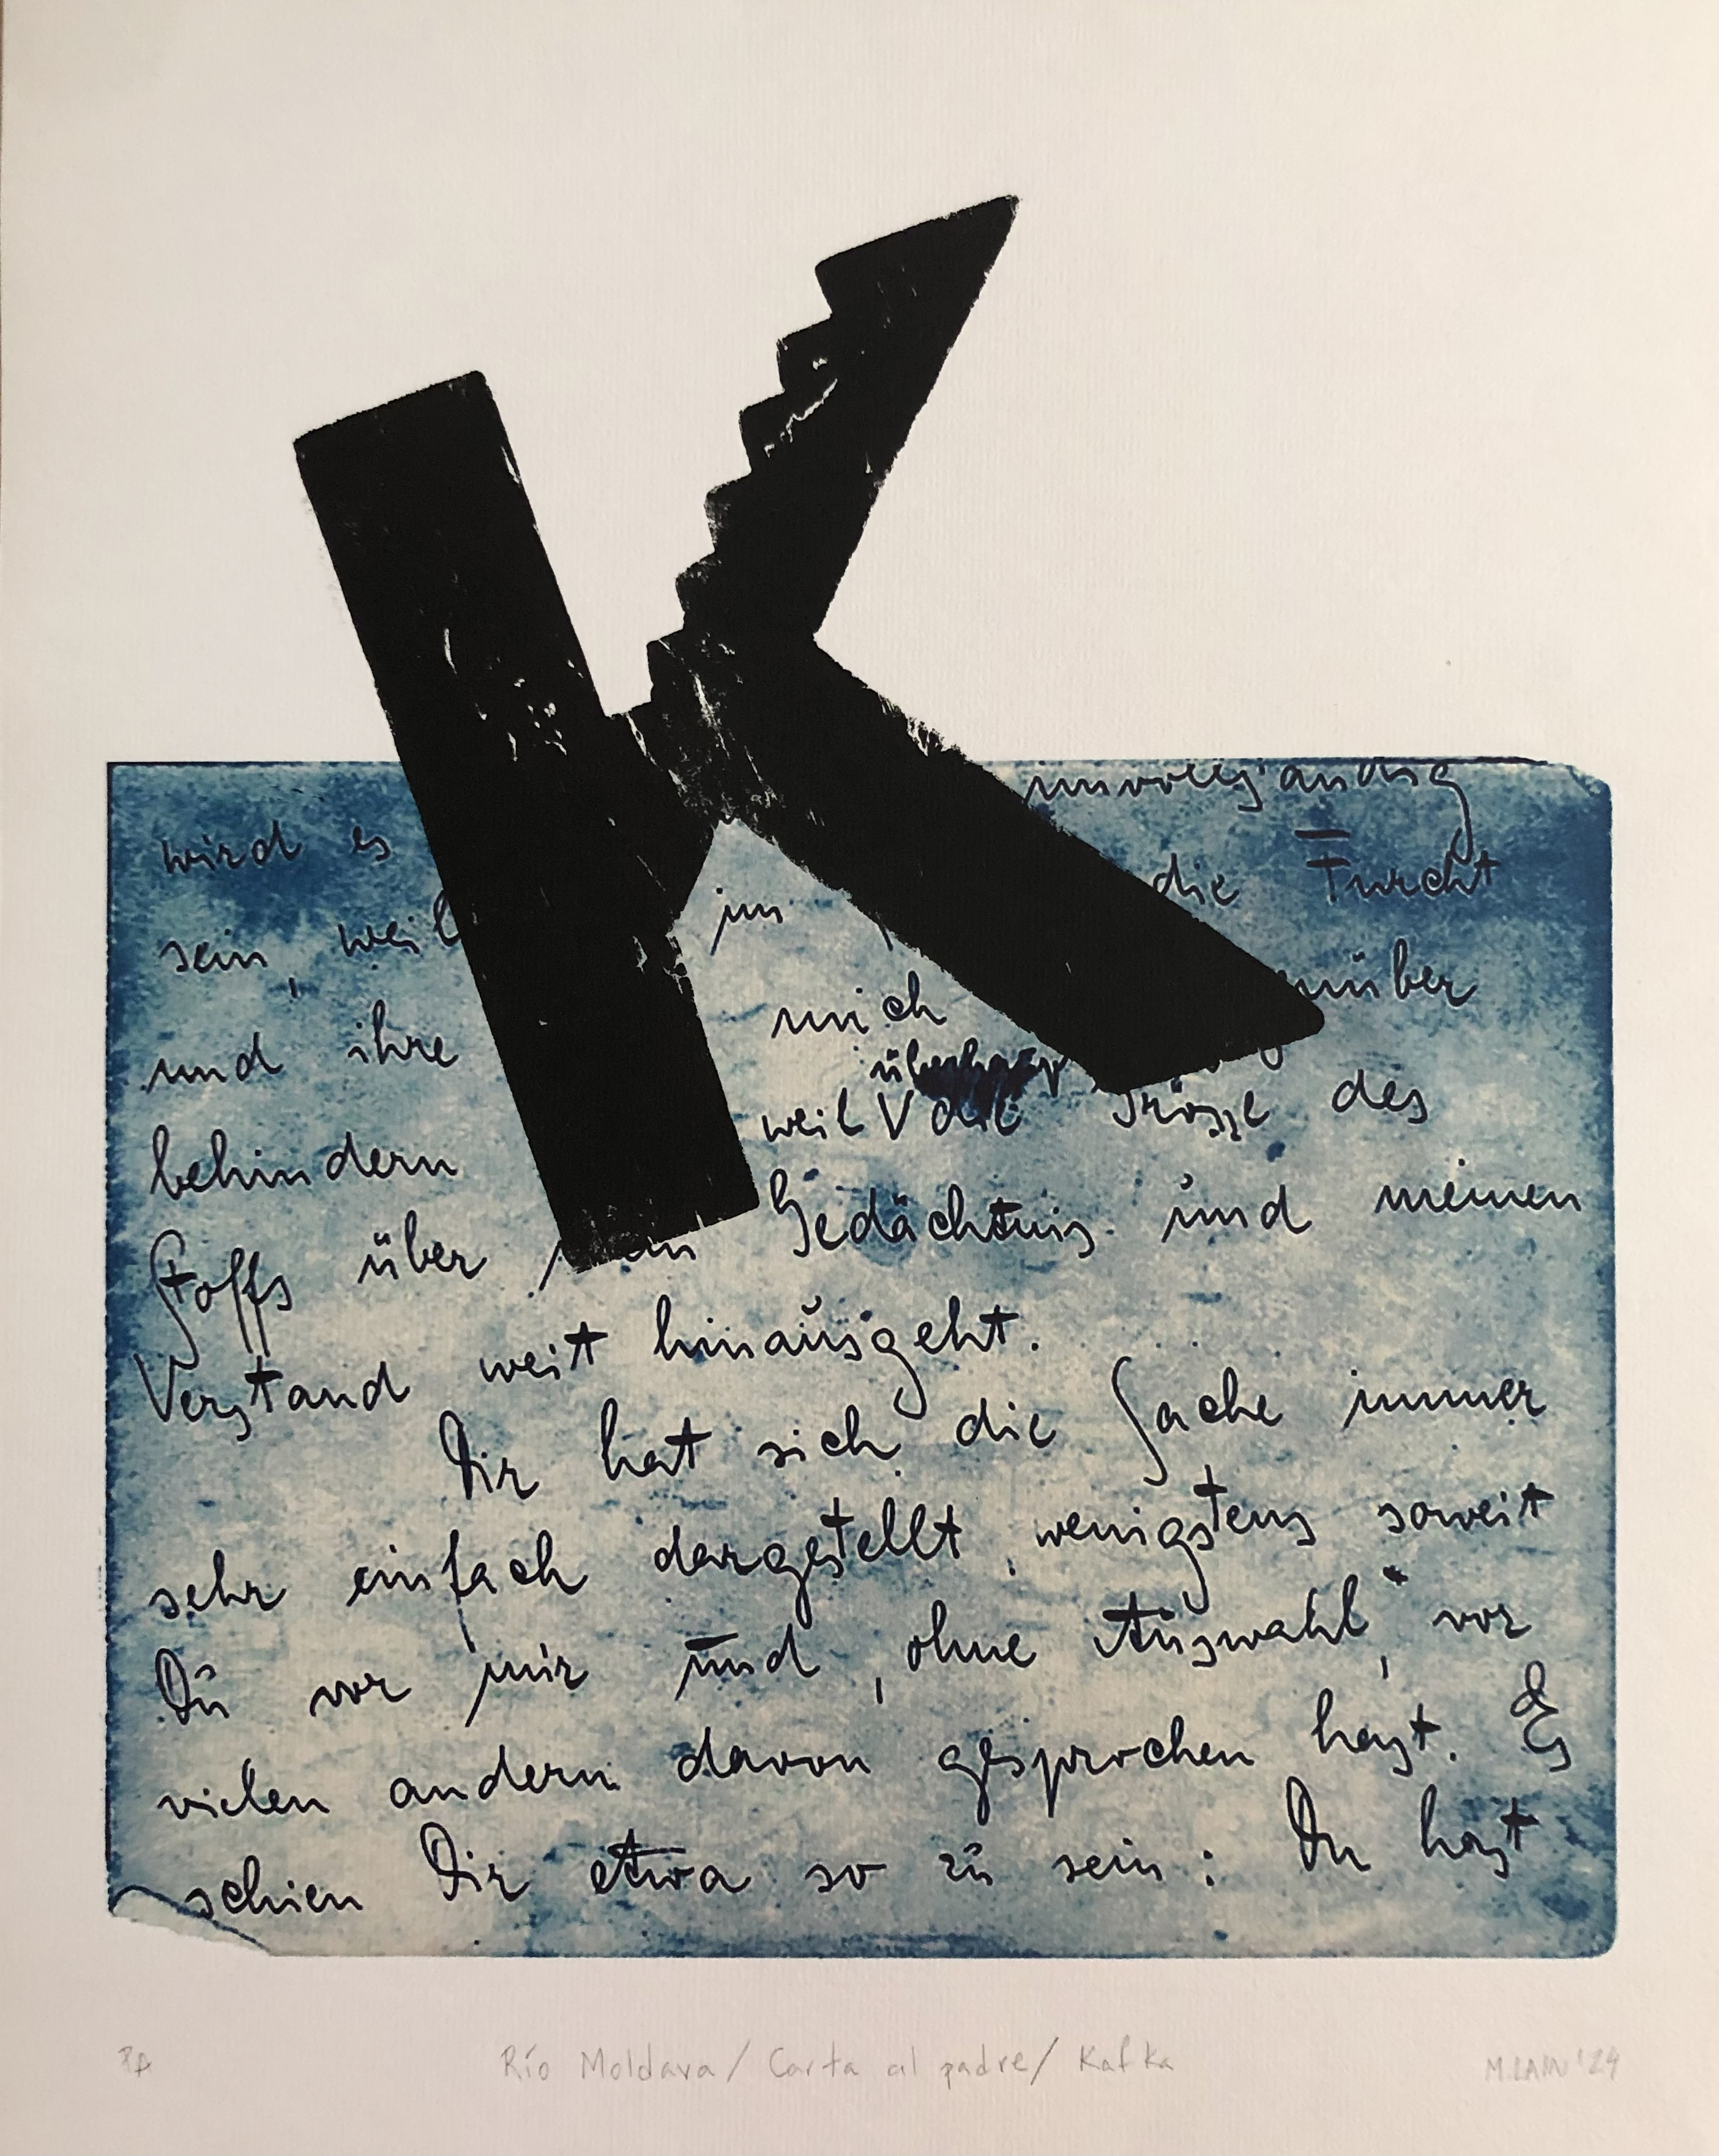 K
unvollständig
wird es die Furcht
sein, weil im
und ihre mich über
überhaupt
behindern weil die Grösse des
Stoffs über Gedächtnis und meinen
Verstand weit hinausgeht.
Dir hat sich die Sache immer
sehr einfach dargestellt, wenigstens soweit
Du vor mir und, ohne Auswahl, vor
vielen andern davon gesprochen hast. Es
schien Dir etwa so zu sein: Du hast
PA Río Moldava/ Carta al padre/ Kafka M. LAIN '24